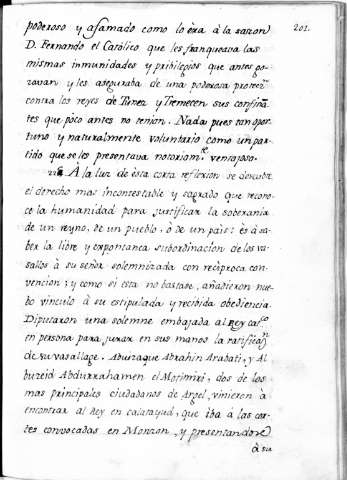 201.
poderoso y afamado como lo èra à la sazon
D. Fernando el Católico que les franqueava las
mismas inmunidades y privilegios que antes go-
zavan y les aseguraba de una poderosa protecn.
contra los reyes de Tunez y Tremecen sus confinā-
tes que poco antes no tenìon. Nada pues tan opor-
tuno y naturalmente voluntario como un par-
tido que se les presentava notoriamte. ventajoso.
A la luz de ésta corta reflexion se descubre
el derecho mas incontestable y sagrado que recono-
ce la humanidad para justificar la soberania
de un reyno, de un pueblo, ò de un país: és à sa-
ber la libre y expontanea subordinacion de los va-
sallos à su señor solemnizada con recìproca con-
vencion; y como si esta no bastase, añadieron nue-
bo vinculo à su estipulada y recibida obediencia.
Diputaron una solemne embajada al Rey catco.
en persona para jurar en sus manos la ratifican.
de su vasallage. Aburaque Abrahin Arabati, y Al
bureid Abdurrahamen el Motimiri, dos de los
mas principales ciudadanos de Argel, vinieron à
encontrar al Rey en calatayud, que iba à las cor-
tes convocadas en Monzon, y presentandose
à su